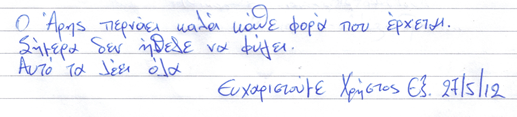 Ο Άρης περνάει καλά κάθε φορά που έρχεται.
Σήμερα δεν ήθελε να φύγει.
Αυτό τα λέει όλα
Ευχαριστούμε Χρήστος Εξ. 27/5/12